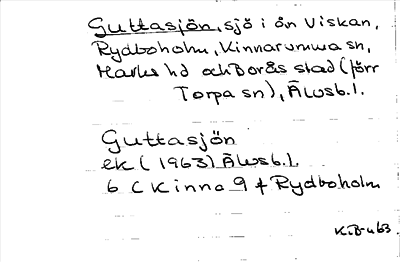 Guttasjön, sjö i ån Viskan,
Rydboholm, Kinnarumma sn,
Marks hd och Borås stad (förr
Torpa sn), Älvsb. l.
Guttasjön
ek (1963) Älvsb. l.
6 C Kinna 9 f Rydboholm